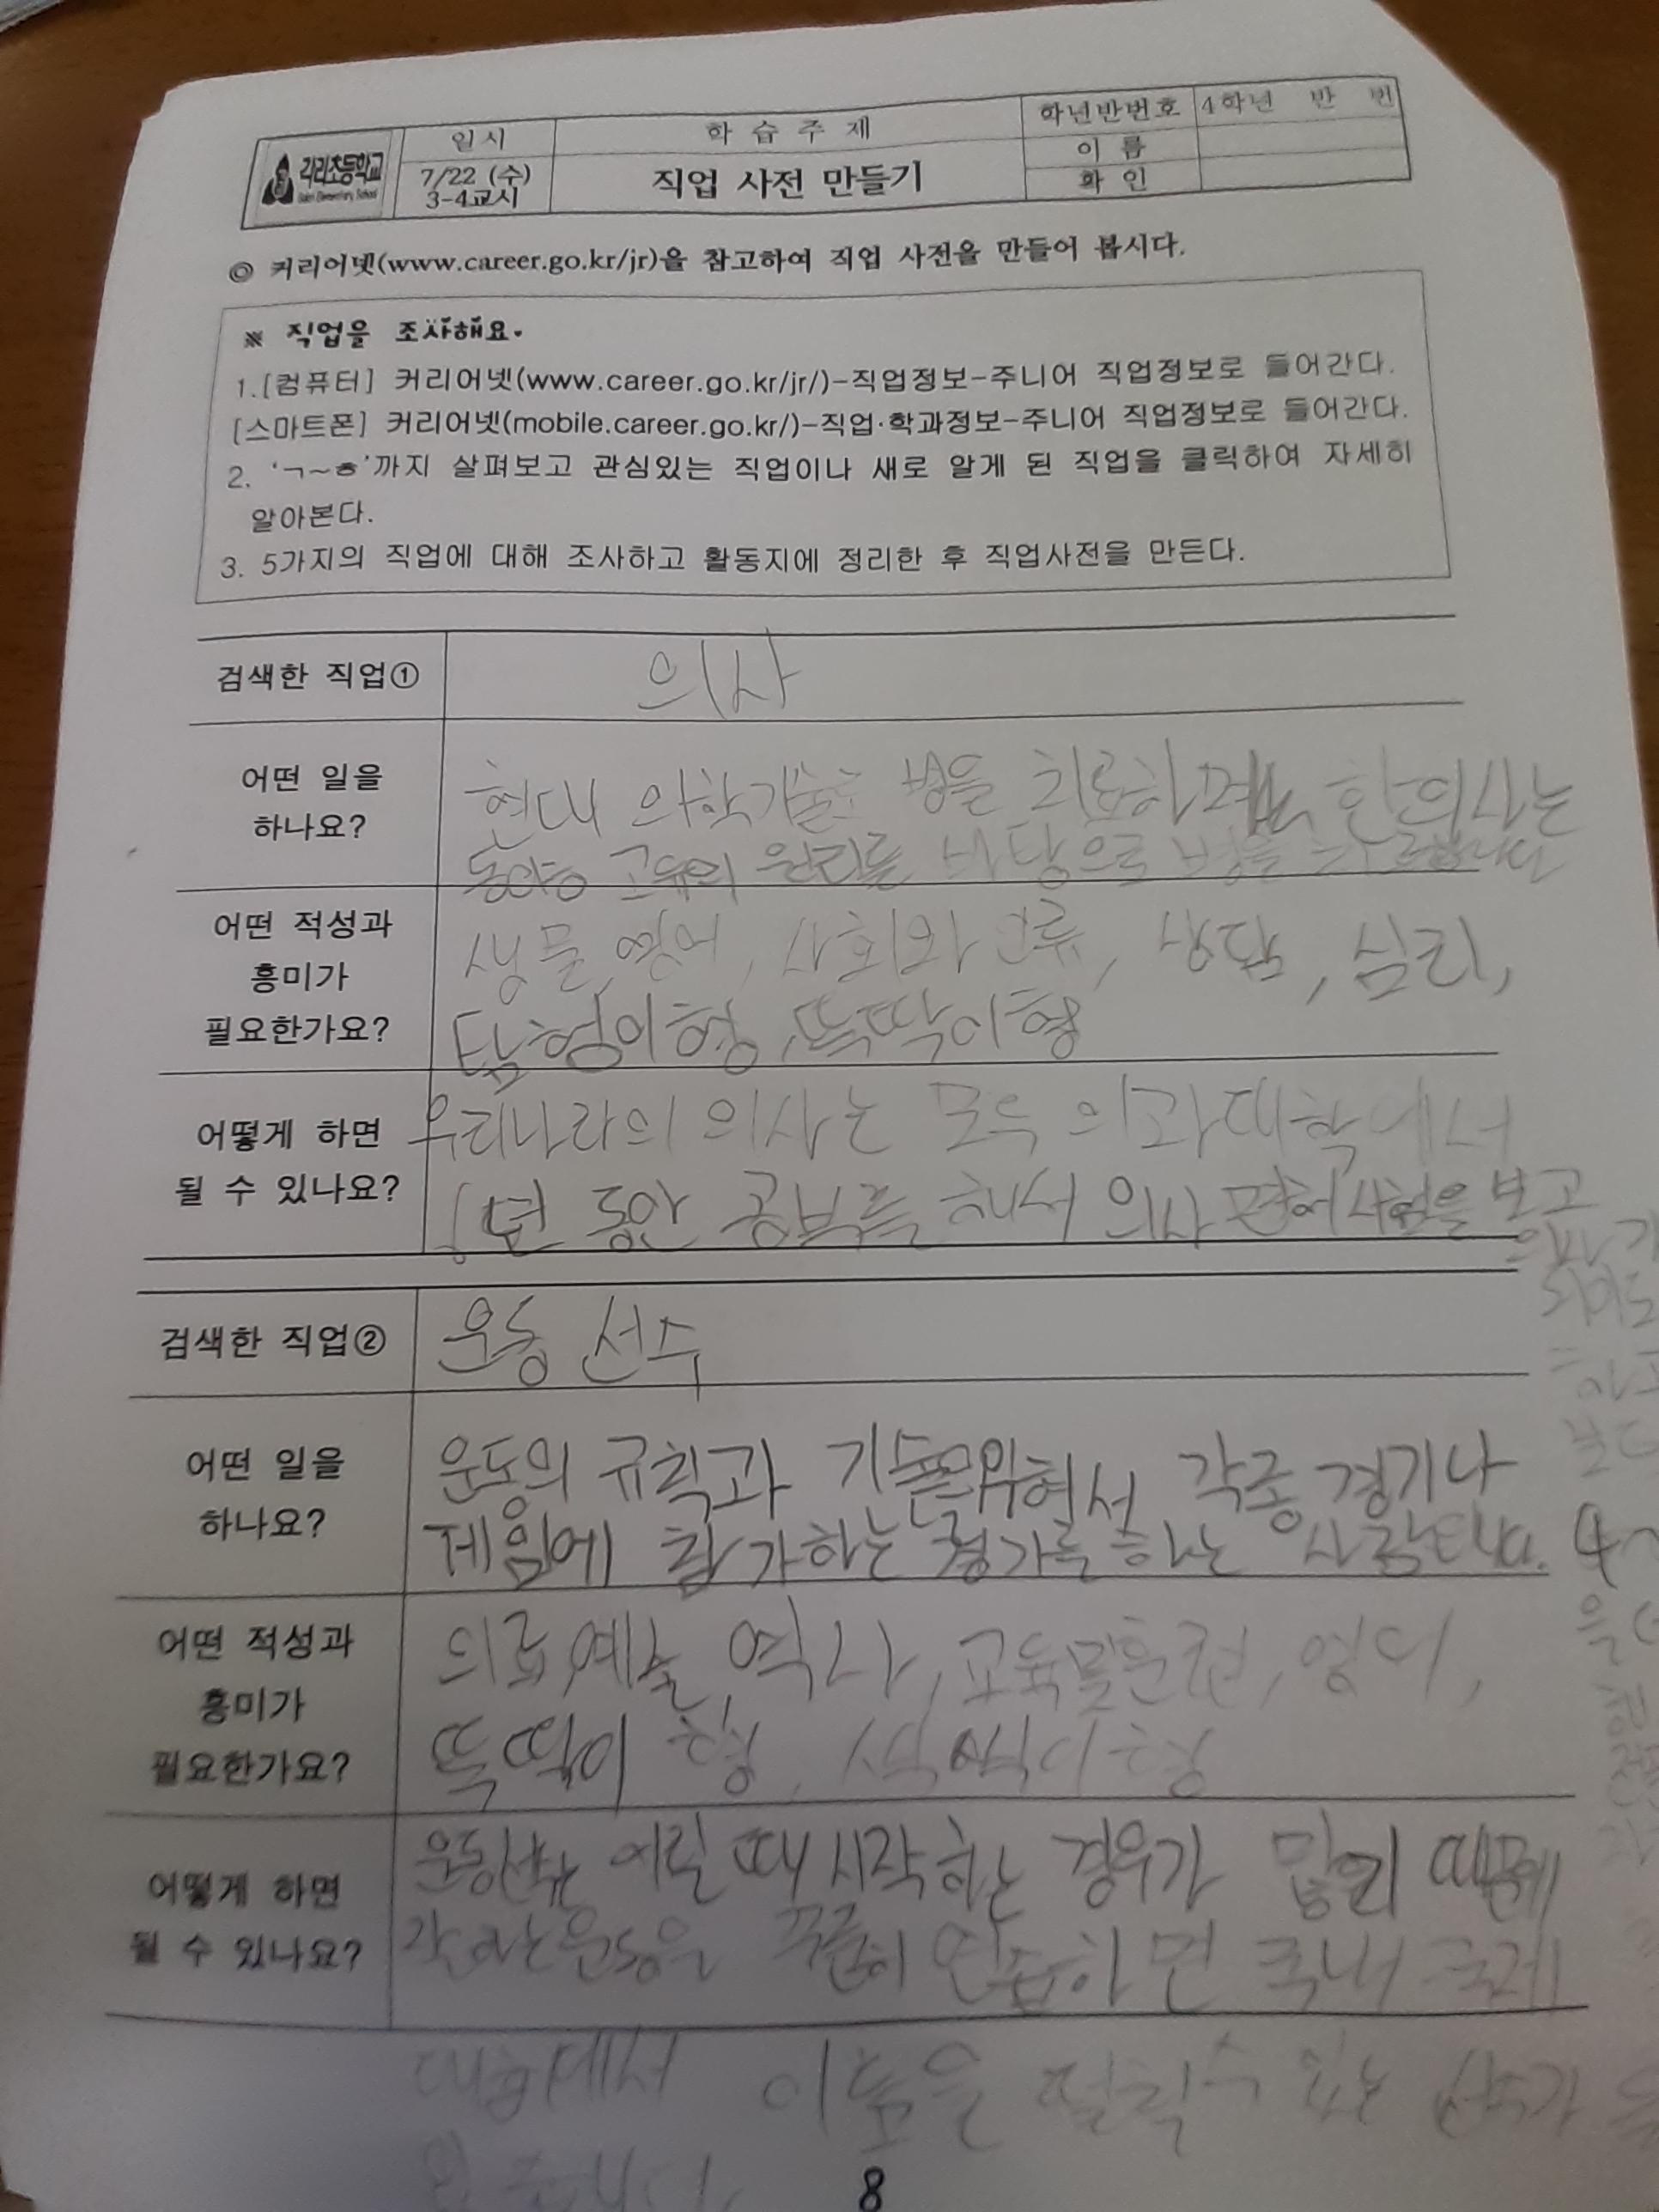 각리초등학교
일시
학 습 주 제
학년반번호
4학년 반 번
7/22 (수)
3-4교시
직업 사전 만들기
이 름
확 인
◎ 커리어넷(www.career.go.kr/jr)을 참고하여 직업 사전을 만들어 봅시다.
※ 직업을 조사해요.
1.[컴퓨터] 커리어넷(www.career.go.kr/jr/)-직업정보-주니어 직업정보로 들어간다.
[스마트폰] 커리어넷(mobile.career.go.kr/)-직업·학과정보-주니어 직업정보로 들어간다.
2. 'ㄱ~ㅎ'까지 살펴보고 관심있는 직업이나 새로 알게 된 직업을 클릭하여 자세히
알아본다.
3. 5가지의 직업에 대해 조사하고 활동지에 정리한 후 직업사전을 만든다.
검색한 직업①
의사
어떤 일을
하나요?
현대 의학기술로 병을 치료하며 한의사는
동양 고유의 원리를 바탕으로 병을
어떤 적성과
흥미가
필요한가요?
생물, 영어, 사회와 인류, 상담, 심리,
탐험이형, 뚝딱이형
어떻게 하면
될 수 있나요?
우리나라의 의사는 모두 의과대학에서
년 동안 공부를 해서 의사 면허시험을 보고
검색한 직업②
운동 선수
어떤 일을
하나요?
운동의 규칙과 기술을 익혀서 각종 경기나
게임에 참가하는 경기를 하는 사람입니다.
어떤 적성과
흥미가
필요한가요?
의료, 예술, 역사, 교육및훈련, 영어,
뚝딱이 형, 싹싹이형
어떻게 하면
될 수 있나요?
운동선수는 어릴 때 시작하는 경우가 많기 때문에
잘하는 운동을 꾸준히 연습하면 국내 국제
대회에서 이름을 떨칠수 있는 선수가
8